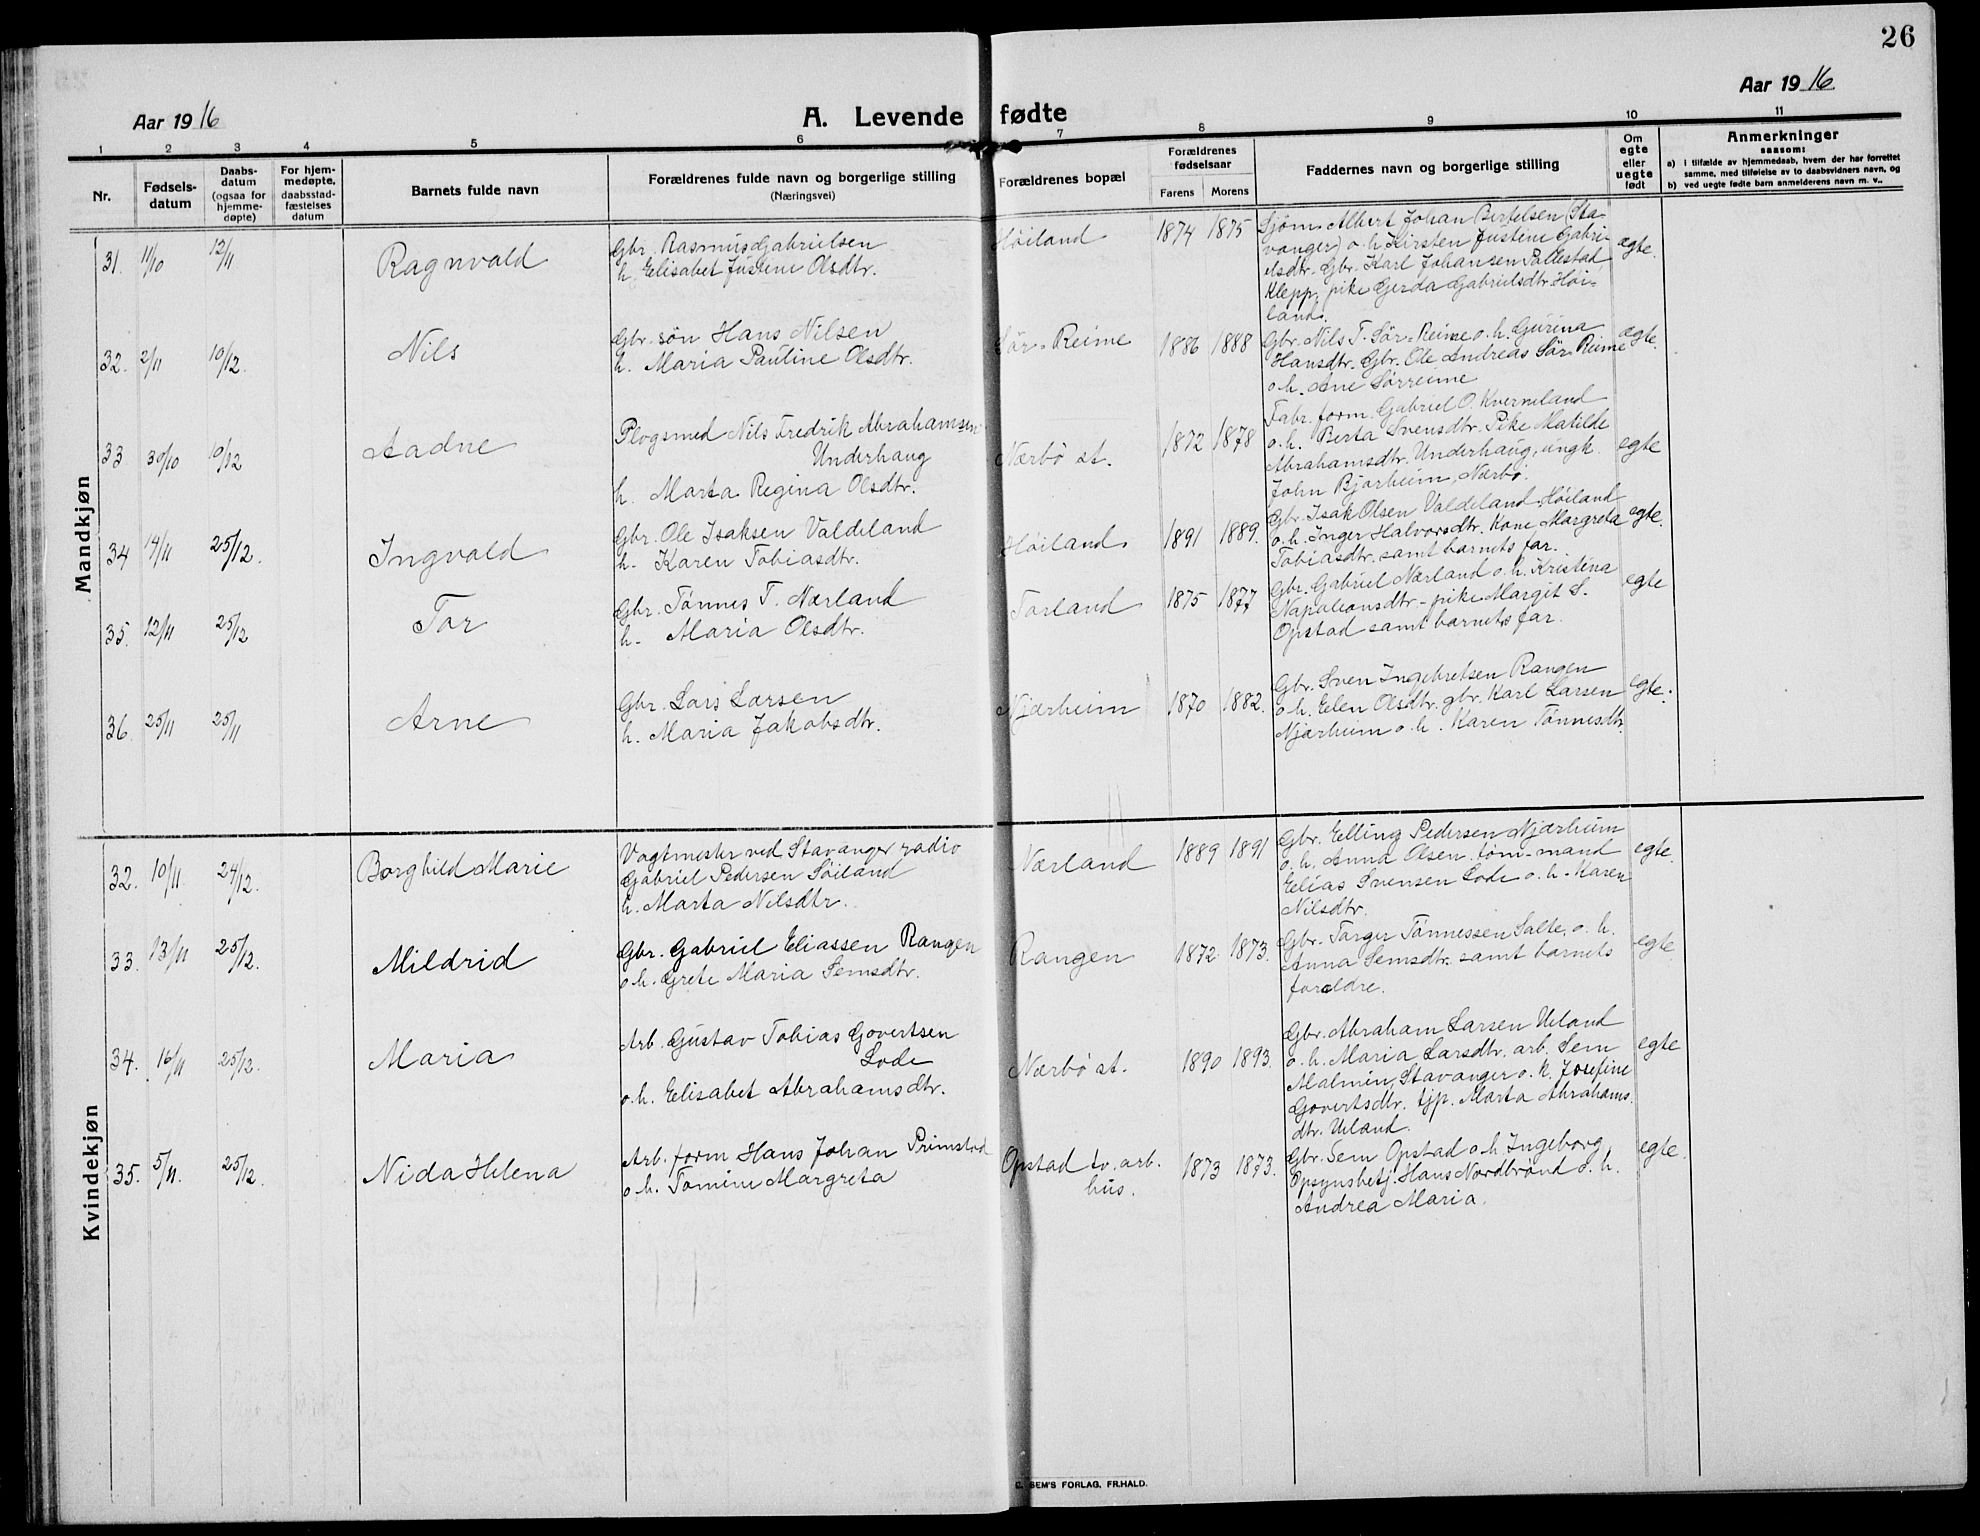 26
Aar 1916
A. Levende fødte
Aar 1916
1 2 3 4 5 6 7 8 9 10 11
Nr.
Fødsels-
datum
Daabs-
datum
(ogsaa for
hjemme-
døpte)
For hjem-
medøpte,
daabsstad-
fæstelses
datum
Barnets fulde navn
Forældrenes fulde navn og borgerlige stilling
(Næringsvei)
Forældrenes bopæl
Forældrenes
fødselsaar
Farens Morens
Faddernes navn og borgerlige stilling
Om
egte
eller
uegte
født
Anmerkninger
saasom:
a) i tilfælde av hjemmedaab, hvem der har forrettet
samme, med tilføielse av to daabsvidners navn, og
b) ved uegte fødte barn anmelderens navn m. v..
Mandkjøn
31. 11/10 12/11 Ragnvald
Gbr. Rasmus Gabrielsen
h. Elisabet Justine Olsdtr.
Høiland 1874 1875
Sjøm. Albert Johan Bertelsen (Sta-
vanger) o. h. Kirsten Justine Gabri-
elsdtr. Gbr. Karl Johansen Pallestad,
Klepp, pike Gerda Gabrielsdtr. Høi-
land.
egte.
32. 2/11 10/12. Nils
Gbr. søn Hans Nilsen
h. Maria Pauline Olsdtr.
Sør-Reime 1886 1888
Gbr. Nils T. Sør-Reime o. h. Gurina
Hansdtr. Gbr. Ole Andreas Sør-Reime
o. h. Ane Sørreime
egte.
33 30/10 10/12 Aadne
Plogsmed Nils Fredrik Abrahamsen
Underhaug
h. Marta Regina Olsdtr.
Nærbø st. 1872 1878
Fabr. form. Gabriel O. Kverneland
o. h. Berta Svensdtr. Pike Matilde
Abrahamsdtr. Underhaug, ungk.
John Bjorheim, Nærbø.
egte
34 14/11 25/12. Ingvald
Gbr. Ole Isaksen Valdeland
h. Karen Tobiasdtr.
Høiland 1891 1889.
Gbr. Isak Olsen Valdeland, Høiland
o. h. Inger Halvorsdtr. Kone Margreta
Tobiasdtr. samt barnets far.
egte.
35. 12/11 25/12 Tor
Gbr. Tønnes T. Nærland
h. Maria Olsdtr.
Torland 1875 1877
Gbr. Gabriel Nærland o. h. Kristina
Napoleonsdtr. - pike Margit S.
Opstad samt barnets far.
egte
36. 25/11 25/11 Arne
Gbr. Lars Larsen
h. Maria Jakobsdtr.
Njærheim 1870 1882.
Gbr. Sven Ingebretsen Rangen
o. h. Elen Olsdtr. gbr. Karl Larsen
Njærheim o. h. Karen Tønnesdtr.
egte.
Kvindekjøn
32. 10/11. 24/12. Borghild Marie
Vagtmester ved Stavanger radio
Gabriel Pedersen Søiland
h. Marta Nilsdtr.
Nærland 1889 1891
Gbr. Elling Pedersen Njærheim
o. h. Anna Olsen. tømmand
Elias Svensen Lode o. h. Karen
Nilsdtr.
egte.
33. 13/11 25/12. Mildrid
Gbr. Gabriel Eliassen Rangen
o. h. Grete Maria Semsdtr.
Rangen 1872 1873.
Gbr. Torger Tønnessen Salte, o. h.
Anna Semsdtr. samt barnets
forældre.
egte
34. 16/11 25/12. Maria
Arb. Gustav Tobias Govertsen
Lode
o. h. Elisabet Abrahamsdtr.
Nærbø st. 1890 1893.
Gbr. Abraham Larsen Ueland
o. h. Maria Larsdtr. arb. Sem
Malmin, Stavanger o. h. Josefine
Govertsdtr. tjp. Marta Abrahams
dtr. Ueland.
egte
35. 5/11. 25/12. Nida Helena
Arb. form Hans Johan Primstad
o. h. Tomine Margreta
Opstad tv. arb.
hus.
1873 1873.
Gbr. Sem Opstad o. h Ingeborg,
Opsynsbetj. Hans Nordbrönd o. h.
Andrea Maria.
egte.
SEM'S FORLAG, FR.HALD.